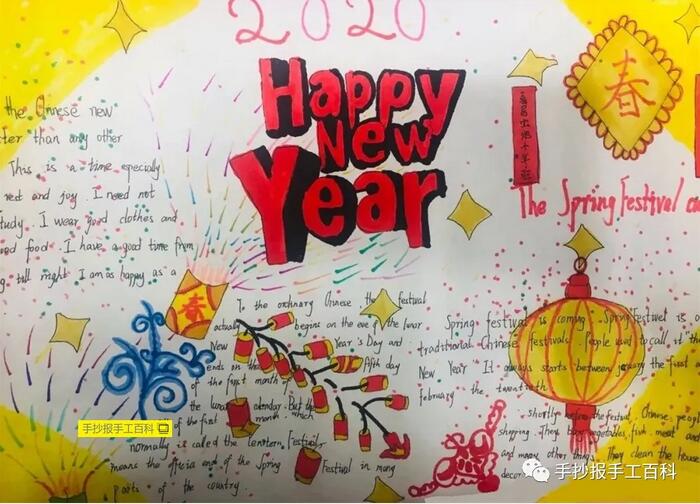 2020
Happy
New
Year
the Chinese new
than any other
This is a time especially
rest and joy. I need not
study. I wear good clothes and
good food. I have a good time from
till night I am as happy as a
春
春
The Spring Festival
To the ordinary Chinese, the festival
actually begins on the eve of the lunar
New Year's Day and
ends on the fifth day
of the first month of
the lunar calendar. But the
of the first month, which
normally is called the Lantern Festival,
means the official end of the Spring
Festival in many
parts of the country.
Spring festival is coming. Spring Festival is a
traditional Chinese festivals. People used to call it the
New Year. It always starts between january the first and
february the twentieth
shortly before the festival, Chinese people
shopping. They buy vegetables, fish, meat and
and many other things. They clean the house
decor
手抄报手工百科
手抄报手工百科